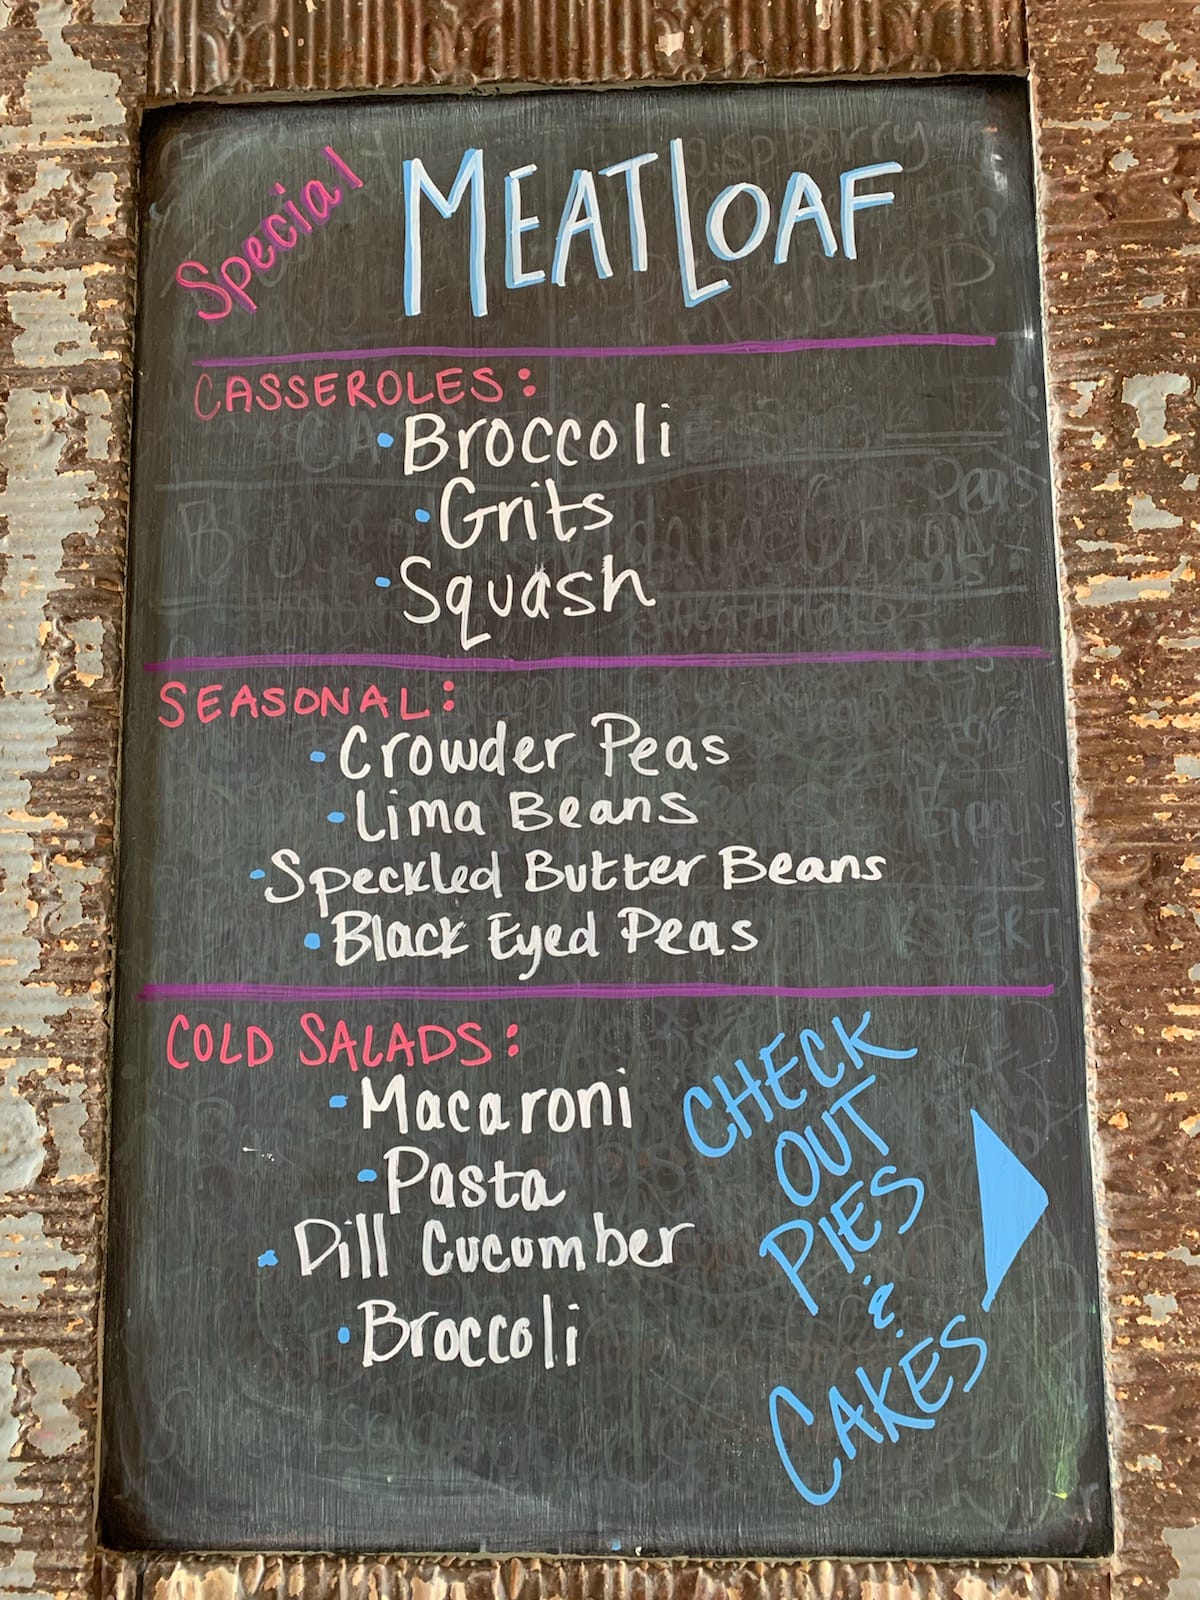 Special MEATLOAF
CASSEROLES:
• Broccoli
• Grits
• Squash
SEASONAL:
• Crowder Peas
• Lima Beans
• Speckled Butter Beans
• Black Eyed Peas
COLD SALADS:
• Macaroni
• Pasta
• Dill Cucumber
• Broccoli
CHECK
OUT
PIES
&
CAKES